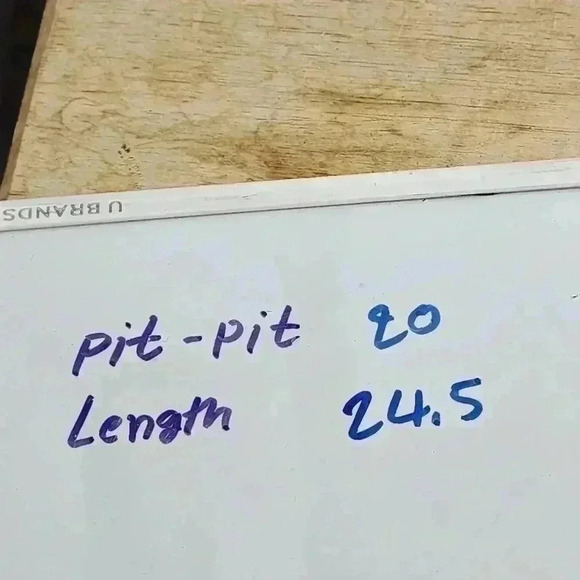 U BRANDS
pit-pit 20
Length 24.5